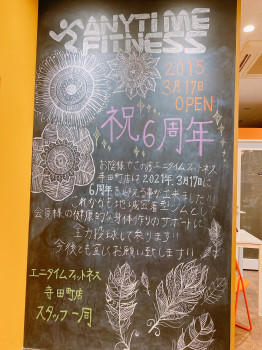 ANYTIME
FITNESS
2015
3月17日
OPEN
祝6周年
お陰様でエニタイムフィットネス
寺田町店は2021年3月17日に
6周年を迎える事が出来ました!!
これからも地域密着型ジムとし
会員様の健康的な身体作りのサポートに
全力投球して参ります!!
今後とも宜しくお願い致します!!
エニタイムフィットネス
寺田町店
スタッフ一同